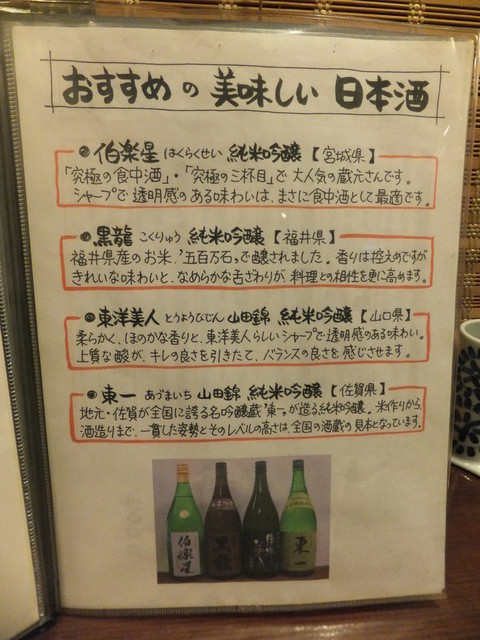 おすすめの美味しい日本酒
伯楽星 はくらくせい 純米吟醸【宮城県】
「究極の食中酒」・「究極の三杯目」で大人気の蔵元さんです。
シャープで透明感のある味わいは、まさに食中酒として最適です。
黒龍 こくりゅう 純米吟醸【福井県】
福井県産のお米、"五百万石"で醸されました。香りは控えめですが
きれいな味わいと、なめらかな舌ざわりが、料理との相性を更に高めます。
東洋美人 とうようびじん 山田錦 純米吟醸【山口県】
柔らかく、ほのかな香りと、東洋美人らしいシャープで透明感のある味わい。
上質な酸が、キレの良さを引きたて、バランスの良さを感じさせます。
東一 あづまいち 山田錦 純米吟醸【佐賀県】
地元・佐賀が全国に誇る名吟醸蔵"東一"が造る純米吟醸。米作りから、
酒造りまで、一貫した姿勢とそのレベルの高さは、全国の酒蔵の見本となっています。
伯楽星
黒龍
東一